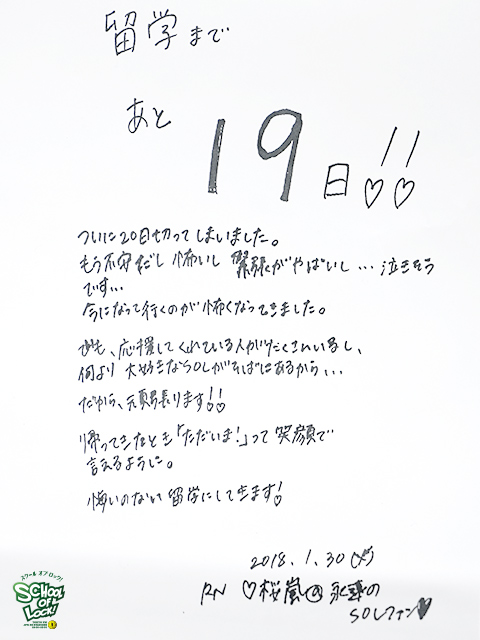 留学まで
あと
19日!!
ついに20日切ってしまいました。
もう不安だし怖いし緊張がやばいし…泣きそう
です…
今になって行くのが怖くなってきました。
でも、応援してくれている人がたくさんいるし、
何より大好きなSOLがそばにあるから...
だから、頑張ります!!
帰ってきたとき「ただいま!」って笑顔で
言えるように。
悔いのない留学にして来ます!
2018.1.30(火)
RN ♡桜嵐@永遠の
SOLファン♥
スクール オブ ロック!
SCHOOL
OF
LOCK!